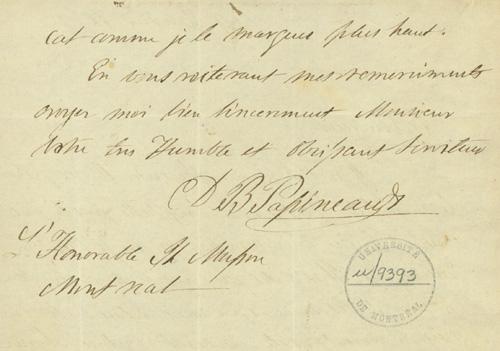 cat comme je le marques plus haut.
En vous reiterant mes remerciments
croyer moi bien sincerement Monsieur
Votre tres Humble et Obeissant Serviteur
D B Papineau
L'Honorable Jh Masson
Montreal
UNIVERSITÉ
u/9393
DE MONTRÉAL